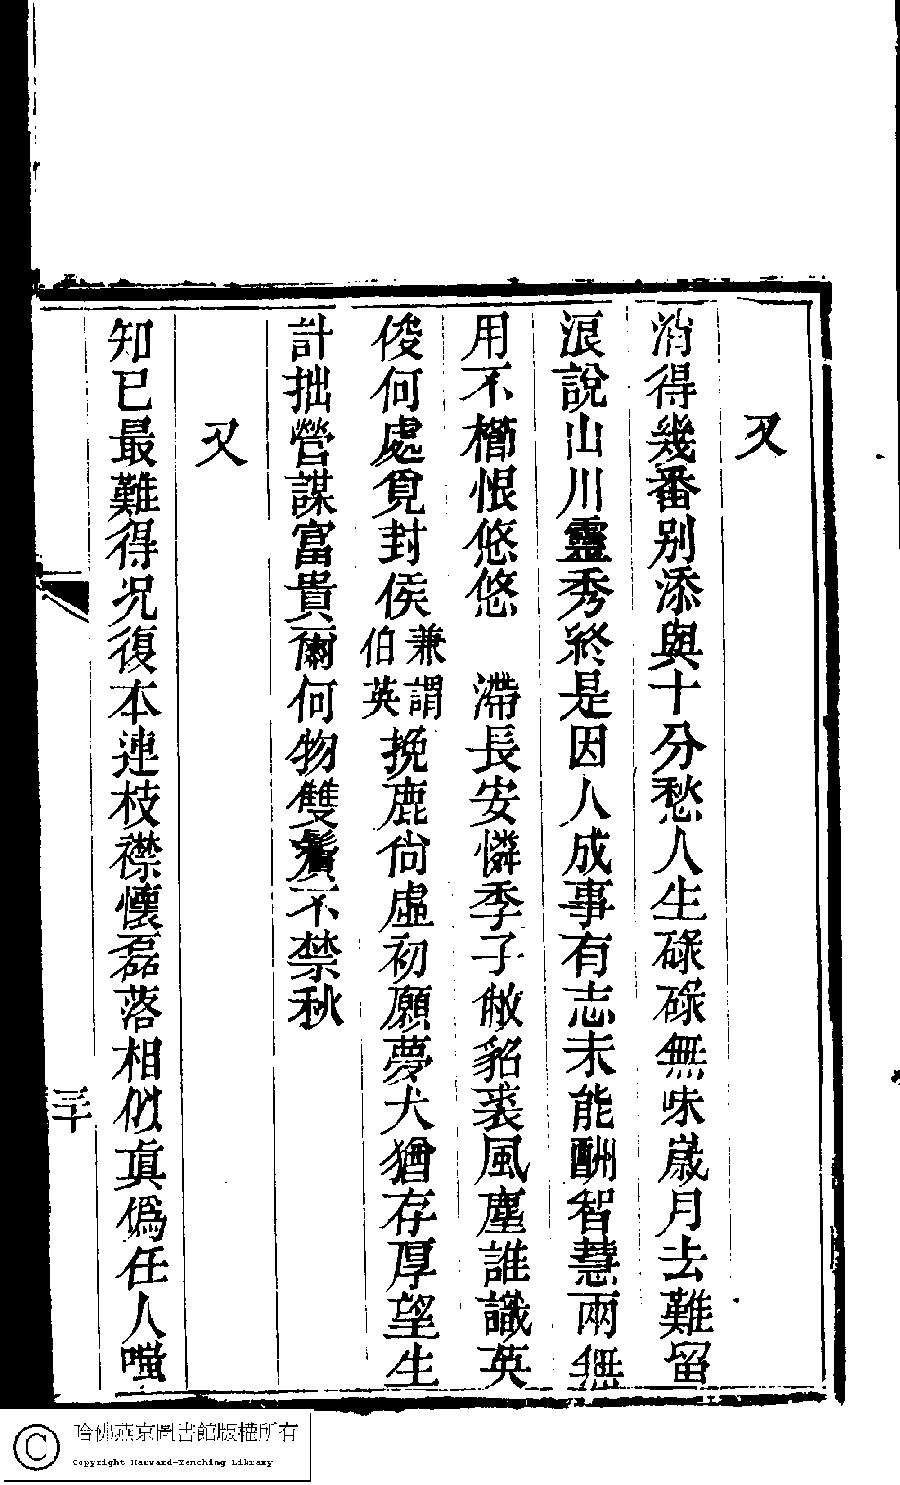 又
消得幾番別添與十分愁人生碌碌無味歲月去難留
浪說山川靈秀終是因人成事有志未能酬智慧兩無
用不櫛恨悠悠　滯長安憐季子敝貂裘風塵誰識英
俊何處覓封侯兼謂伯英挽鹿尙虛初願夢犬猶存厚望生
計拙營謀富貴爾何物雙鬢不禁秋
又
知已最難得况復本連枝襟懷磊落相似眞僞任人嗤
三十
哈佛燕京圖書館版權所有
Copyright Harvard-Yenching Library